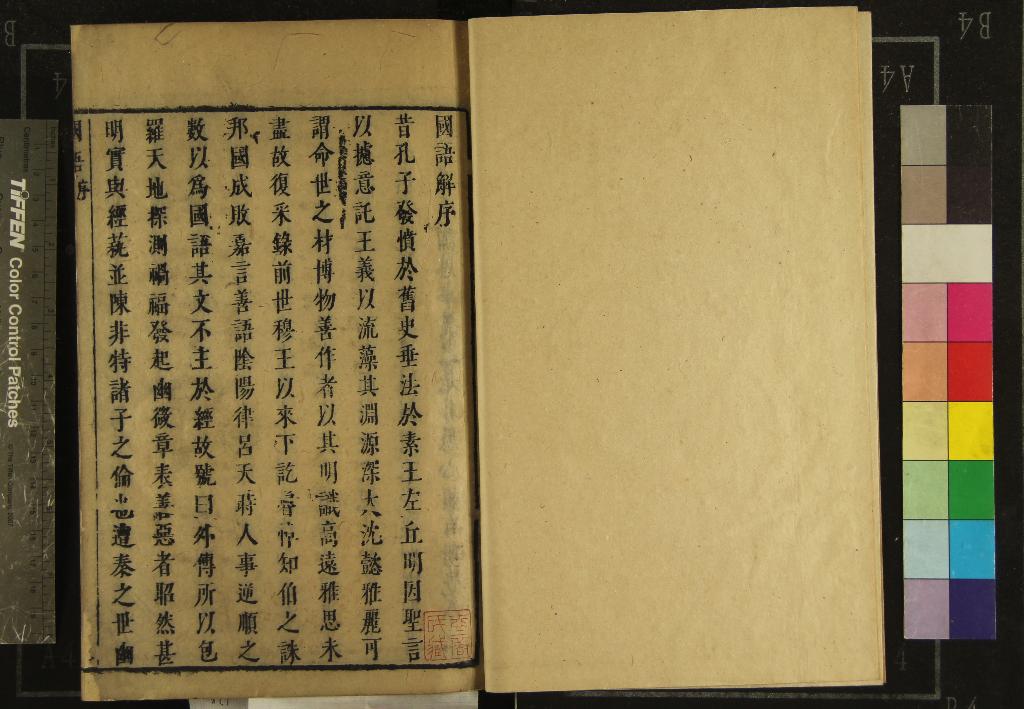 國語解序
昔孔子發憤於舊史垂法於素王左丘明因聖言
以攄意託王義以流藻其淵源深大沈懿雅麗可
謂命世之材博物善作者以其明識高遠雅思未
盡故復采錄前世穆王以來下訖魯悼知伯之誅
邦國成敗嘉言善語陰陽律呂天時人事逆順之
數以爲國語其文不主於經故號曰外傳所以包
羅天地探測禍福發起幽微章表善惡者昭然甚
明實與經藝並陳非特諸子之倫也遭秦之世幽
國語序
TIFFEN Color Control Patches
B4
A4